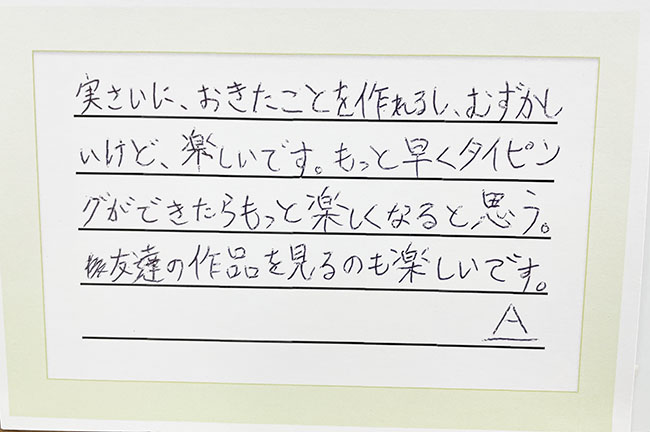 実さいに、おきたことを作れるし、むずかし
いけど、楽しいです。もっと早くタイピン
グができたらもっと楽しくなると思う。
友達の作品を見るのも楽しいです。
A